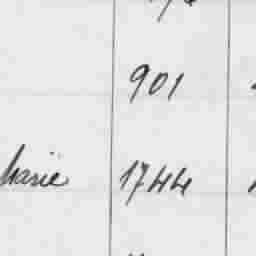 901
Marie 1744